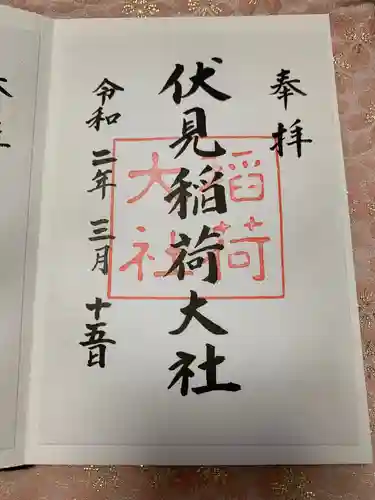 奉拝
伏見稲荷大社
稲荷
大社
令和二年三月十五日